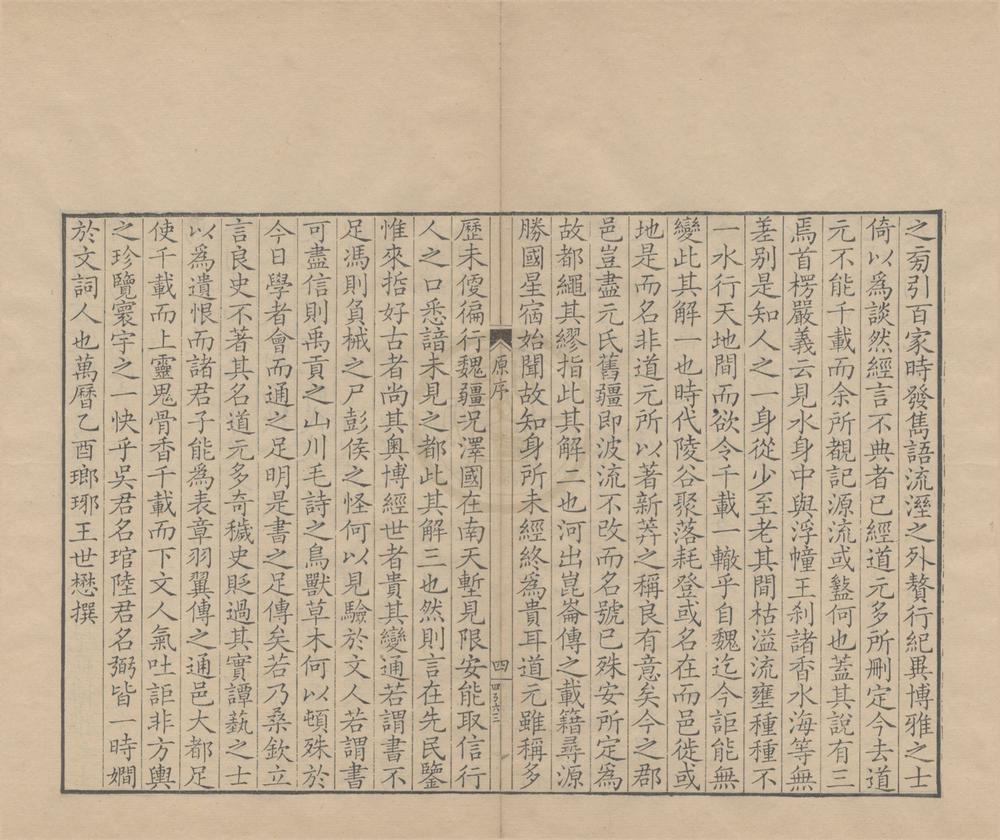 之旁引百家時發雋語流溼之外贅行紀異博雅之士
倚以爲談然經言不典者已經道元多所刪定今去道
元不能千載而余所覩記源流或盭何也蓋其說有三
焉首楞嚴義云見水身中與浮幢王刹諸香水海等無
差别是知人之一身從少至老其間枯溢流壅種種不
一水行天地間而欲令千載一轍乎自魏迄今詎能無
變此其解一也時代陵谷聚落耗登或名在而邑徙或
地是而名非道元所以著新莽之稱良有意矣今之郡
邑豈盡元氏舊疆即波流不改而名號已殊安所定爲
故都繩其繆指此其解二也河出崑崙傳之載籍尋源
勝國星宿始聞故知身所未經終爲貴耳道元雖稱多
原序
四
四了六三
歷未僾徧行魏疆况澤國在南天塹見限安能取信行
人之口悉諳未見之都此其解三也然則言在先民鑒
惟來哲好古者尚其奥博經世者貴其變通若謂書不
足馮則負械之尸彭侯之怪何以見驗於文人若謂書
可盡信則禹貢之山川毛詩之鳥獸草木何以頓殊於
今日學者會而通之足明是書之足傳矣若乃桑欽立
言良史不著其名道元多奇穢史貶過其實譚藝之士
以爲遺恨而諸君子能爲表章羽翼傳之通邑大都足
使千載而上靈鬼骨香千載而下文人氣吐詎非方輿
之珍覽寰宇之一快乎吳君名琯陸君名弼皆一時嫺
於文詞人也萬曆乙酉瑯琊王世懋撰